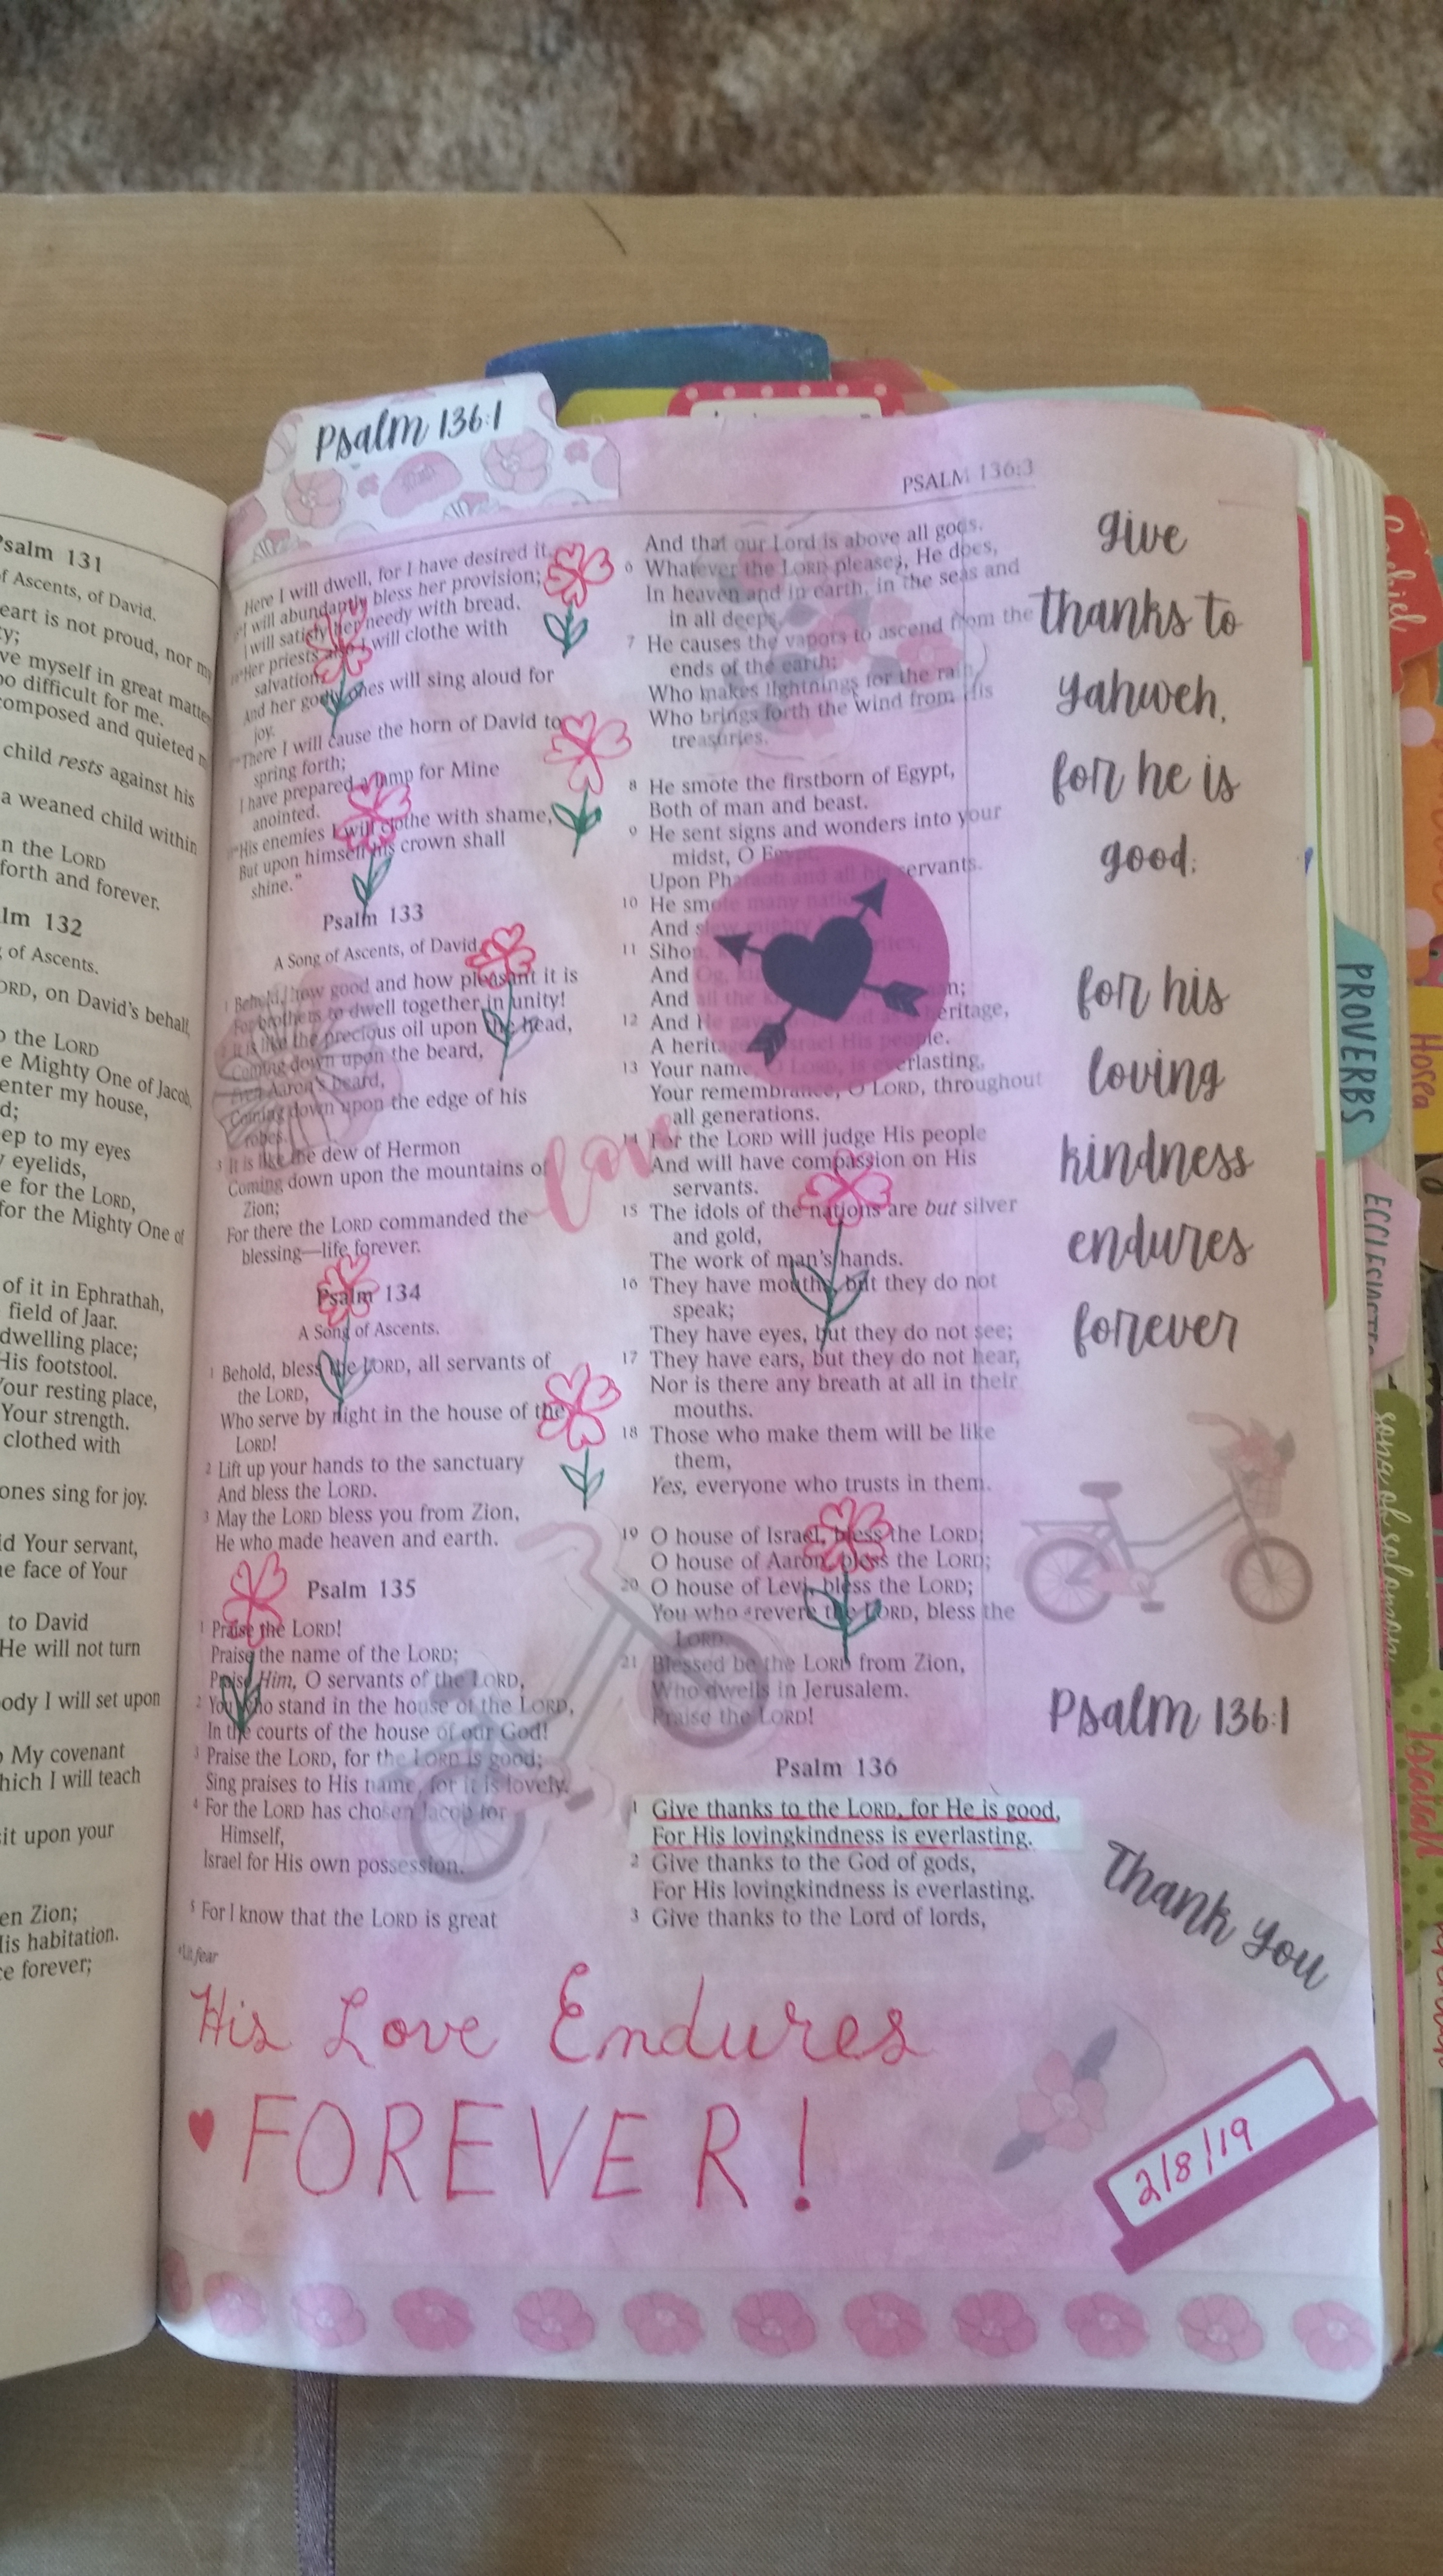 Psalm 131
of Ascents, of David.
heart is not proud, nor my
myself in great matters
too difficult for me.
composed and quieted
child rests against his
a weaned child within
in the LORD
forth and forever.
132
of Ascents.
on David's behalf,
to the LORD
Mighty One of Jacob,
enter my house,
to my eyes
eyelids,
for the LORD,
for the Mighty One of
of it in Ephrathah,
field of Jaar.
dwelling place;
His footstool.
resting place,
Your strength.
clothed with
ones sing for joy.
Your servant,
face of Your
to David
He will not turn
body I will set upon
My covenant
which I will teach
sit upon your
Zion;
His habitation.
forever;
Psalm 136:1
PSALM 136:3
Here I will dwell, for I have desired it.
"I will abundantly bless her provision;
I will satisfy her needy with bread.
"Her priests also I will clothe with
salvation,
And her godly ones will sing aloud for
joy.
"There I will cause the horn of David to
spring forth;
I have prepared a lamp for Mine
anointed.
"His enemies I will clothe with shame,
But upon himself his crown shall
shine."
Psalm 133
A Song of Ascents, of David.
1 Behold, how good and how pleasant it is
For brothers to dwell together in unity!
2 It is like the precious oil upon the head,
Coming down upon the beard,
Even Aaron's beard,
Coming down upon the edge of his
robes.
3 It is like the dew of Hermon
Coming down upon the mountains of
Zion;
For there the LORD commanded the
blessing—life forever.
Psalm 134
A Song of Ascents.
1 Behold, bless the LORD, all servants of
the LORD,
Who serve by night in the house of the
LORD!
2 Lift up your hands to the sanctuary
And bless the LORD.
3 May the LORD bless you from Zion,
He who made heaven and earth.
Psalm 135
1 Praise the LORD!
Praise the name of the LORD;
Praise Him, O servants of the LORD,
2 You who stand in the house of the LORD,
In the courts of the house of our God!
3 Praise the LORD, for the LORD is good;
Sing praises to His name, for it is lovely.
4 For the LORD has chosen Jacob for
Himself,
Israel for His own possession.
5 For I know that the LORD is great
Lit fear
love
And that our Lord is above all gods.
6 Whatever the LORD pleases, He does,
In heaven and in earth, in the seas and
in all deeps.
7 He causes the vapors to ascend from the
ends of the earth;
Who makes lightnings for the rain,
Who brings forth the wind from His
treasuries.
8 He smote the firstborn of Egypt,
Both of man and beast.
9 He sent signs and wonders into your
midst, O Egypt,
Upon Pharaoh and all his servants.
10 He smote many nations
And slew mighty kings,
11 Sihon,
And Og,
And all the
12 And He gave heritage,
A heritage to Israel His people.
13 Your name, O LORD, is everlasting,
Your remembrance, O LORD, throughout
all generations.
14 For the LORD will judge His people
And will have compassion on His
servants.
15 The idols of the nations are but silver
and gold,
The work of man's hands.
16 They have mouths, but they do not
speak;
They have eyes, but they do not see;
17 They have ears, but they do not hear,
Nor is there any breath at all in their
mouths.
18 Those who make them will be like
them,
Yes, everyone who trusts in them.
19 O house of Israel, bless the LORD;
O house of Aaron, bless the LORD;
20 O house of Levi, bless the LORD;
You who revere the LORD, bless the
LORD.
21 Blessed be the LORD from Zion,
Who dwells in Jerusalem.
Praise the LORD!
Psalm 136
1 Give thanks to the LORD, for He is good,
For His lovingkindness is everlasting.
2 Give thanks to the God of gods,
For His lovingkindness is everlasting.
3 Give thanks to the Lord of lords,
give
thanks to
yahweh,
for he is
good;
for his
loving
kindness
endures
forever
Psalm 136:1
Thank you
His Love Endures
FOREVER!
2/8/19
Ezekiel
PROVERBS
Hosea
ECCLESIASTES
song of solomon
Isaiah